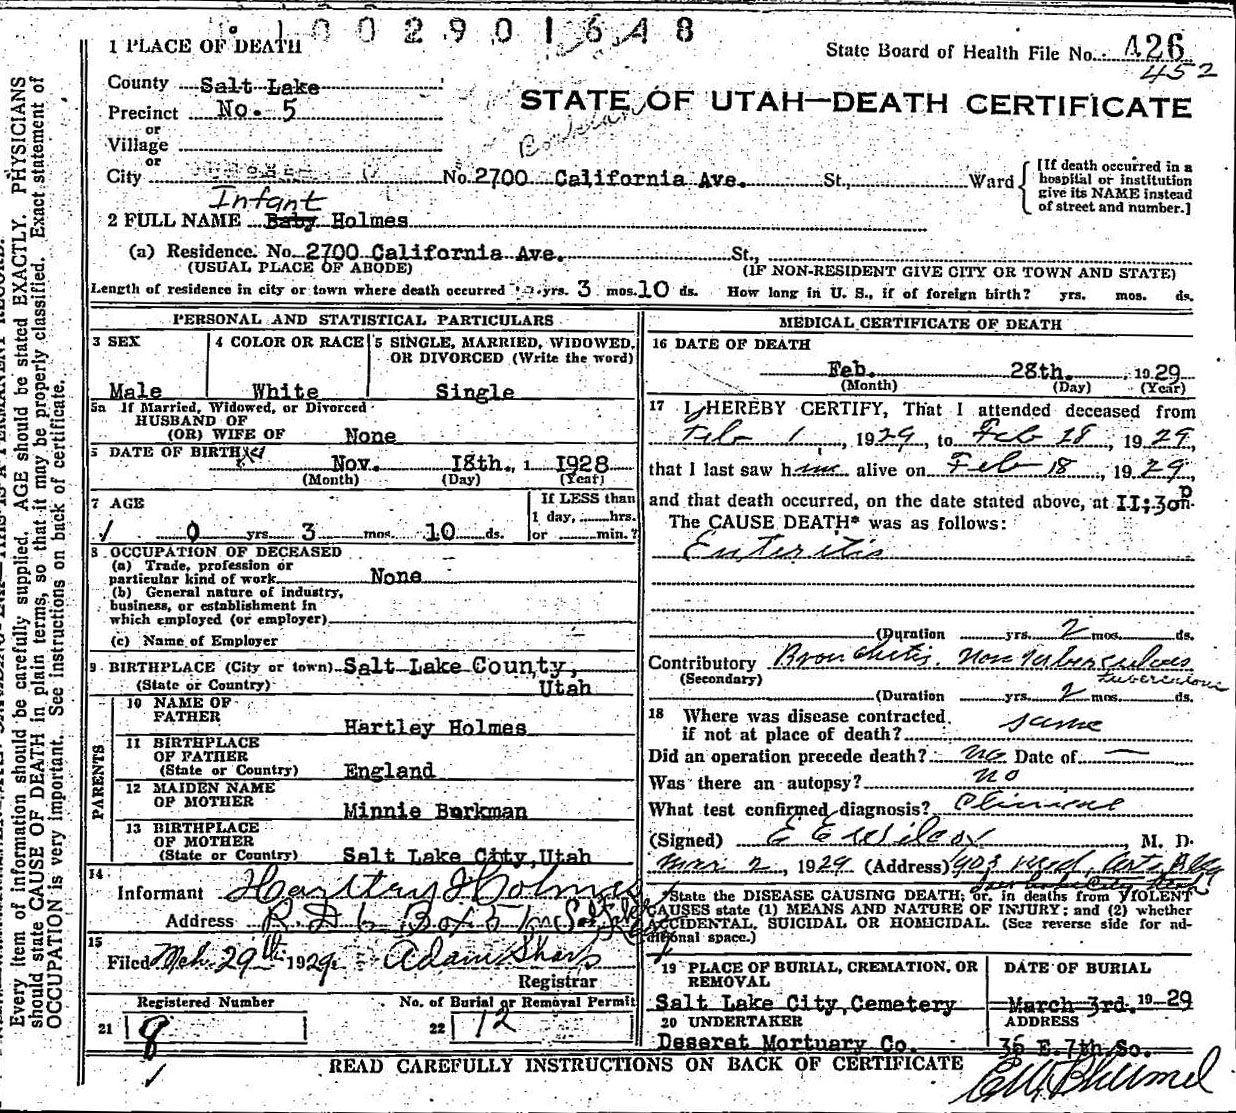 1002901648
1 PLACE OF DEATH
State Board of Health File No. 426
452
County Salt Lake
Precinct No. 5
or
Village
or
City
STATE OF UTAH—DEATH CERTIFICATE
No. 2700 California Ave. St., Ward
[If death occurred in a
hospital or institution
give its NAME instead
of street and number.]
Infant
2 FULL NAME Baby Holmes
(a) Residence. No. 2700 California Ave. St.,
(USUAL PLACE OF ABODE) (IF NON-RESIDENT GIVE CITY OR TOWN AND STATE)
Length of residence in city or town where death occurred yrs. 3 mos. 10 ds. How long in U. S., if of foreign birth? yrs. mos. ds.
PERSONAL AND STATISTICAL PARTICULARS
3 SEX
Male
4 COLOR OR RACE
White
5 SINGLE, MARRIED, WIDOWED,
OR DIVORCED (Write the word)
Single
5a If Married, Widowed, or Divorced
HUSBAND OF
(OR) WIFE OF None
6 DATE OF BIRTH
Nov. 18th., 1928
(Month) (Day) (Year)
7 AGE
0 yrs. 3 mos. 10 ds.
If LESS than
1 day, hrs.
or min.?
8 OCCUPATION OF DECEASED
(a) Trade, profession or
particular kind of work None
(b) General nature of industry,
business, or establishment in
which employed (or employer)
(c) Name of Employer
9 BIRTHPLACE (City or town) Salt Lake County,
(State or Country) Utah
PARENTS
10 NAME OF
FATHER Hartley Holmes
11 BIRTHPLACE
OF FATHER
(State or Country) England
12 MAIDEN NAME
OF MOTHER Minnie Borkman
13 BIRTHPLACE
OF MOTHER
(State or Country) Salt Lake City, Utah
14
Informant Hartley Holmes
Address R. D. 6 Box 5
15
Filed Mch. 29th 1929. Adam Sharp
Registrar
Registered Number
21 8
No. of Burial or Removal Permit
22 12
MEDICAL CERTIFICATE OF DEATH
16 DATE OF DEATH
Feb. 28th. 1929
(Month) (Day) (Year)
17 I HEREBY CERTIFY, That I attended deceased from
Feb 1, 1929, to Feb 28, 1929,
that I last saw him alive on Feb 18, 1929,
and that death occurred, on the date stated above, at 11:30 p m.
The CAUSE DEATH* was as follows:
Enteritis
(Duration yrs. 2 mos. ds.
Contributory Bronchitis non tuberculous
(Secondary) tuberculous
(Duration yrs. 2 mos. ds.
18 Where was disease contracted
if not at place of death? same
Did an operation precede death? no Date of —
Was there an autopsy? no
What test confirmed diagnosis? Clinical
(Signed) E E Wilcox M. D.
Mar 2, 1929 (Address) 403 Med. Arts Bldg
Salt Lake City Utah
*State the DISEASE CAUSING DEATH; or, in deaths from VIOLENT
CAUSES state (1) MEANS AND NATURE OF INJURY; and (2) whether
ACCIDENTAL, SUICIDAL OR HOMICIDAL. (See reverse side for ad-
ditional space.)
19 PLACE OF BURIAL, CREMATION, OR
REMOVAL
Salt Lake City, Cemetery
DATE OF BURIAL
March 3rd. 1929
20 UNDERTAKER
Deseret Mortuary Co.
ADDRESS
36 E. 7th So.
READ CAREFULLY INSTRUCTIONS ON BACK OF CERTIFICATE
Every item of information should be carefully supplied. AGE should be stated EXACTLY. PHYSICIANS
should state CAUSE OF DEATH in plain terms, so that it may be properly classified. Exact statement of
OCCUPATION is very important. See instructions on back of certificate.